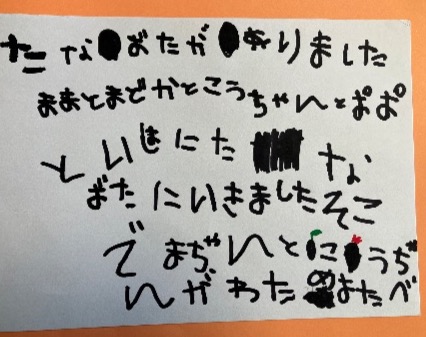 たなばたがありました
ままとまどかとこうちゃんとぱぱ
といしにたな
ばたにいきましたそこ
でまぢゃんとこうぢ
んがわためまたべ